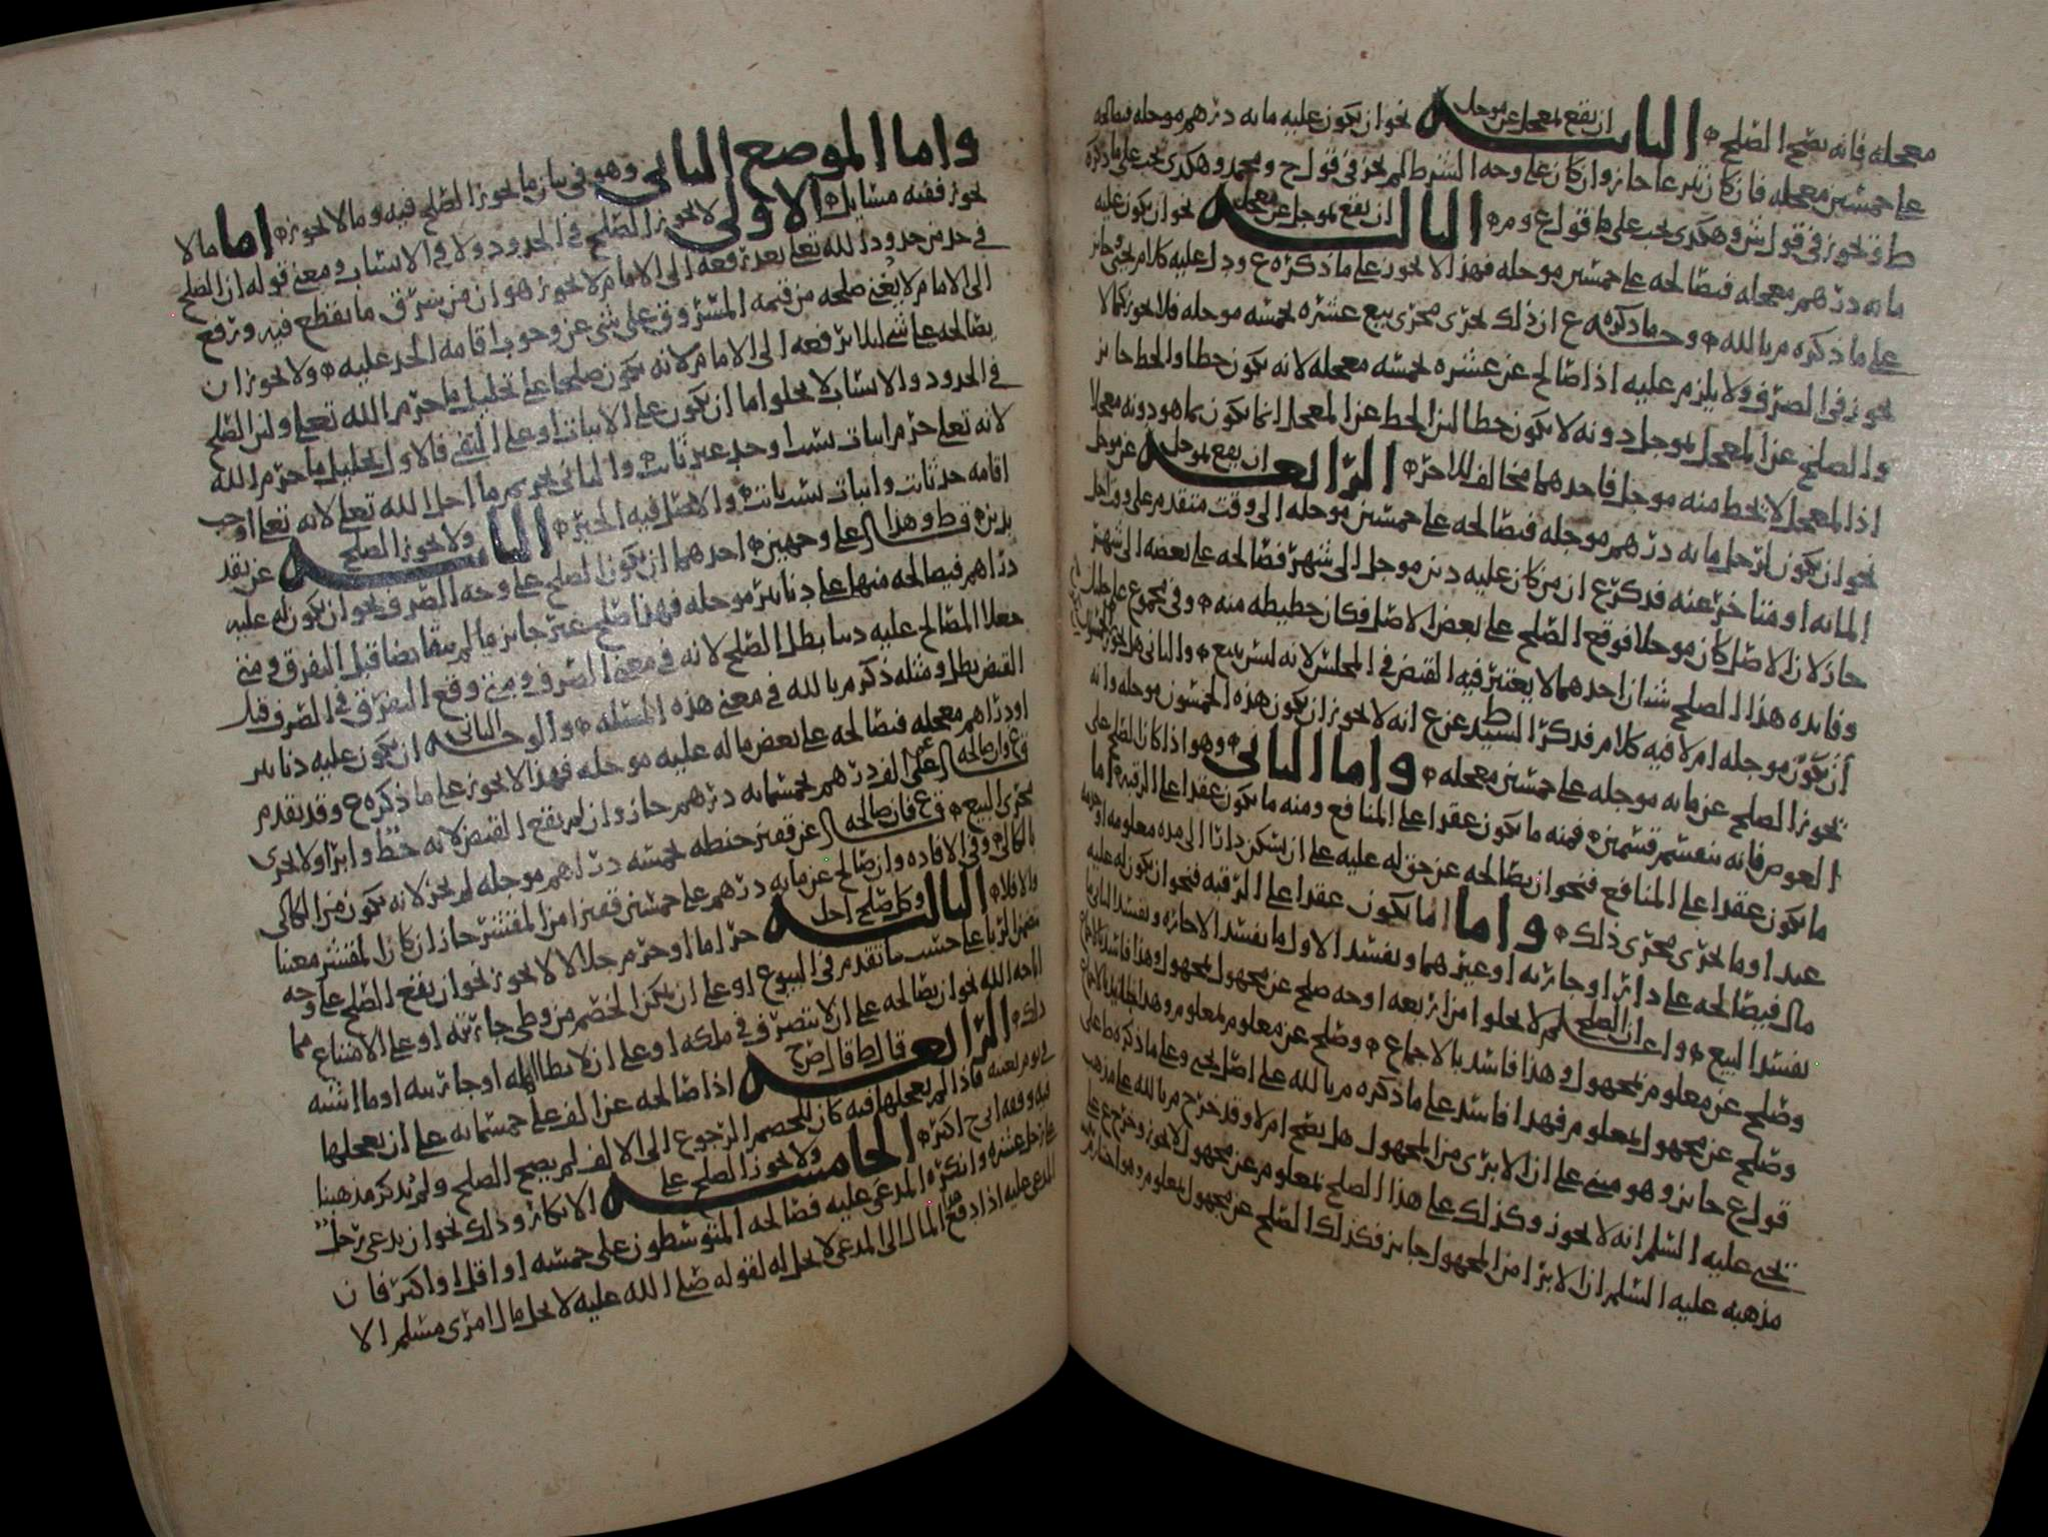 معجله فانه يصح الصلح الثانيه ان يقع بمعجل عن موجل نحو ان يكون عليه مايه درهم موجله فيصالحه
على خمسين معجله فان كان تبرعا جاز وان كان على وجه الشرط لم يجز في قول ح ومحمد وهكذى يجب على ما ذكره
ط وتجوز في قول ش وهكذى يجب على قول ع وم الثالثه ان يقع بموجل عن معجل نحو ان يكون عليه
مايه درهم معجله فيصالحه على خمسين موجله فهذا لا يجوز على ما ذكره ع ودل عليه كلام يحيى وجايز
على ما ذكره م بالله وجه ما ذكره ع ان ذلك يجرى مجرى بيع عشره بخمسه موجله فلا يجوز كما لا
يجوز في الصرف ولا يلزم عليه اذا صالح عن عشره بخمسه معجله لانه يكون حطا والحط جايز
والصلح عن المعجل بموجل دونه لا يكون حطا لان الحط عن المعجل انما يكون بما هو دونه معجلا
اذا المعجل لا يحط منه موجل فاحدهما مخالف للاخر الرابعه ان يقع بموجل عن موجل
نحو ان يكون لرجل مايه درهم موجله فيصالحه على خمسين موجله الى وقت متقدم على وقت اجل
المايه او متاخر عنه فذكر ع ان من كان عليه دين موجل الى شهر فصالحه على بعضه الى شهر
جاز لان الاصل كان موجلا فوقع الصلح على بعض الاصل فكان حطيطه منه وفي مجموع على خليل
وفايده هذا الصلح شيان احدهما لا يعتبر فيه القبض في المجلس لانه ليس ببيع والثاني هل يجوز
ان تكون موجله ام لا فيه كلام فذكر السيد ط عن ع انه لا يجوز ان يكون هذه الخمسون موجله وانه
يجوز الصلح عن مايه موجله على خمسين معجله واما الثاني وهو اذا كان الصلح على
العوض فانه ينقسم قسمين فمنه ما يكون عقدا على المنافع ومنه ما يكون عقدا على الرقبه اما
ما يكون عقدا على المنافع فنحو ان يصالحه عن حق له عليه على ان يسكن دارا الى مده معلومه او خدمه
عبد او ما يجرى مجرى ذلك واما ما يكون عقدا على الرقبه فنحو ان يكون له عليه
مال فيصالحه على دار او جاريه او غيرهما ويفسد الاول ما يفسد الاجاره ويفسد الثاني ما
يفسد البيع واعلم ان الصلح لا يخلوا من اربعه اوجه صلح عن مجهول بمجهول وهذا فاسد بالاجماع
وصلح عن معلوم بمجهول وهذا فاسد بالاجماع وصلح عن معلوم بمعلوم وهذا جايز بالاجماع
وصلح عن مجهول بمعلوم فهذا فاسد على ما ذكره م بالله على اصل يحيى وعلى ما ذكره ط على
قول ع جايز وهو مبنى على ان الابرى من المجهول هل يصح ام لا وقد خرج م بالله على مذهب
يحيى عليه السلم انه لا يجوز وكذلك على هذا الصلح بمعلوم عن مجهول لا يجوز وخرج ع على
مذهبه عليه السلم ان الابرا من المجهول جايز فكذلك الصلح عن مجهول بمعلوم وهو اختيار م
واما الموضع الثاني وهو في بيان ما يجوز الصلح فيه وما لا يجوز اما ما لا
يجوز ففيه مسايل الاولى لا يجوز الصلح في الحدود ولا في الانساب ومعنى قوله ان الصلح
في حد من حدود الله تعلى بعد رفعه الى الامام لا يجوز هو ان من سرق ما يقطع فيه ورفع
الى الامام لا يغنى صلحه من قيمه المسروق على شي عن وجوب اقامه الحد عليه ولا يجوز ان
يصالحه على شي ليلا يرفعه الى الامام لانه يكون صلحا على تحليل ما حرم الله تعلى ولان الصلح
في الحدود والانساب لا يخلوا اما ان يكون على الاثبات او على النفى فالاول تحليل ما حرم الله
لانه تعلى حرم اثبات نسب او حد غير ثابت والثاني تحريم ما احل الله تعلى لانه تعلى اوجب
اقامه حد ثابت واثبات نسب ثابت والاصل فيه الخبر الثانيه ولا يجوز الصلح عن نقد
بدين ق ط وهذا على وجهين احدهما ان يكون الصلح على وجه الصرف نحو ان يكون له عليه
دراهم فيصالحه منها على دنانير موجله فهذا صلح غير جايز ما لم يتقابضا قبل التفرق ومتى
جعلا المصالح عليه دينا بطل الصلح لانه في معنى الصرف ومتى وقع التفرق في الصرف قبل
القبض بطل ومثله ذكر م بالله في معنى هذه المسله والوجه الثاني ان يكون عليه دنانير
او دراهم معجله فيصالحه على بعض ماله عليه موجله فهذا لا يجوز على ما ذكره ع وقد تقدم
فرع وان صالحه على الف درهم بخمسمايه درهم جاز وان لم يقع القبض لانه حط وابرا ولا يجرى
مجرى البيع فرع فان صالحه عن قفيز حنطه بخمسه دراهم موجله لم يجز لانه يكون من الكالى
بالكالى وفي الافاده وان صالح عن مايه درهم على خمسين قفيزا من المفسر جاز ان كان المفسر معينا
والا فلا الثالثه وكل صلح احل حراما او حرم حلالا لا يجوز نحو ان يقع الصلح على وجه
يتضمن الربا على حسب ما تقدم في البيوع او على ان يمكن الخصم من وطى جاريته او على الامتناع مما
اباحه الله نحو ان يصالحه على ان لا يتصرف في ملكه او على ان لا يطا اهله او جاريته او ما اشبه
ذلك الرابعه قال ط قال ص ح اذا صالحه عن الف على خمسمايه على ان يعجلها
في يوم بعينه فاذا لم يعجلها فيه كان للخصم الرجوع الى الالف لم يصح الصلح ولم يذكر مذهبنا
فيه وفقه ابي ح اكثره الخامسه ولا يجوز الصلح على الانكار وذلك نحو ان يدعى رجل
على رجل عشره وانكره المدعى عليه فصالحه المتوسطون على خمسه او اقل او اكثر فان
المدعى عليه اذا دفع المال الى المدعى لا يحل له لقوله صلى الله عليه لا يحل مال امرى مسلم الا